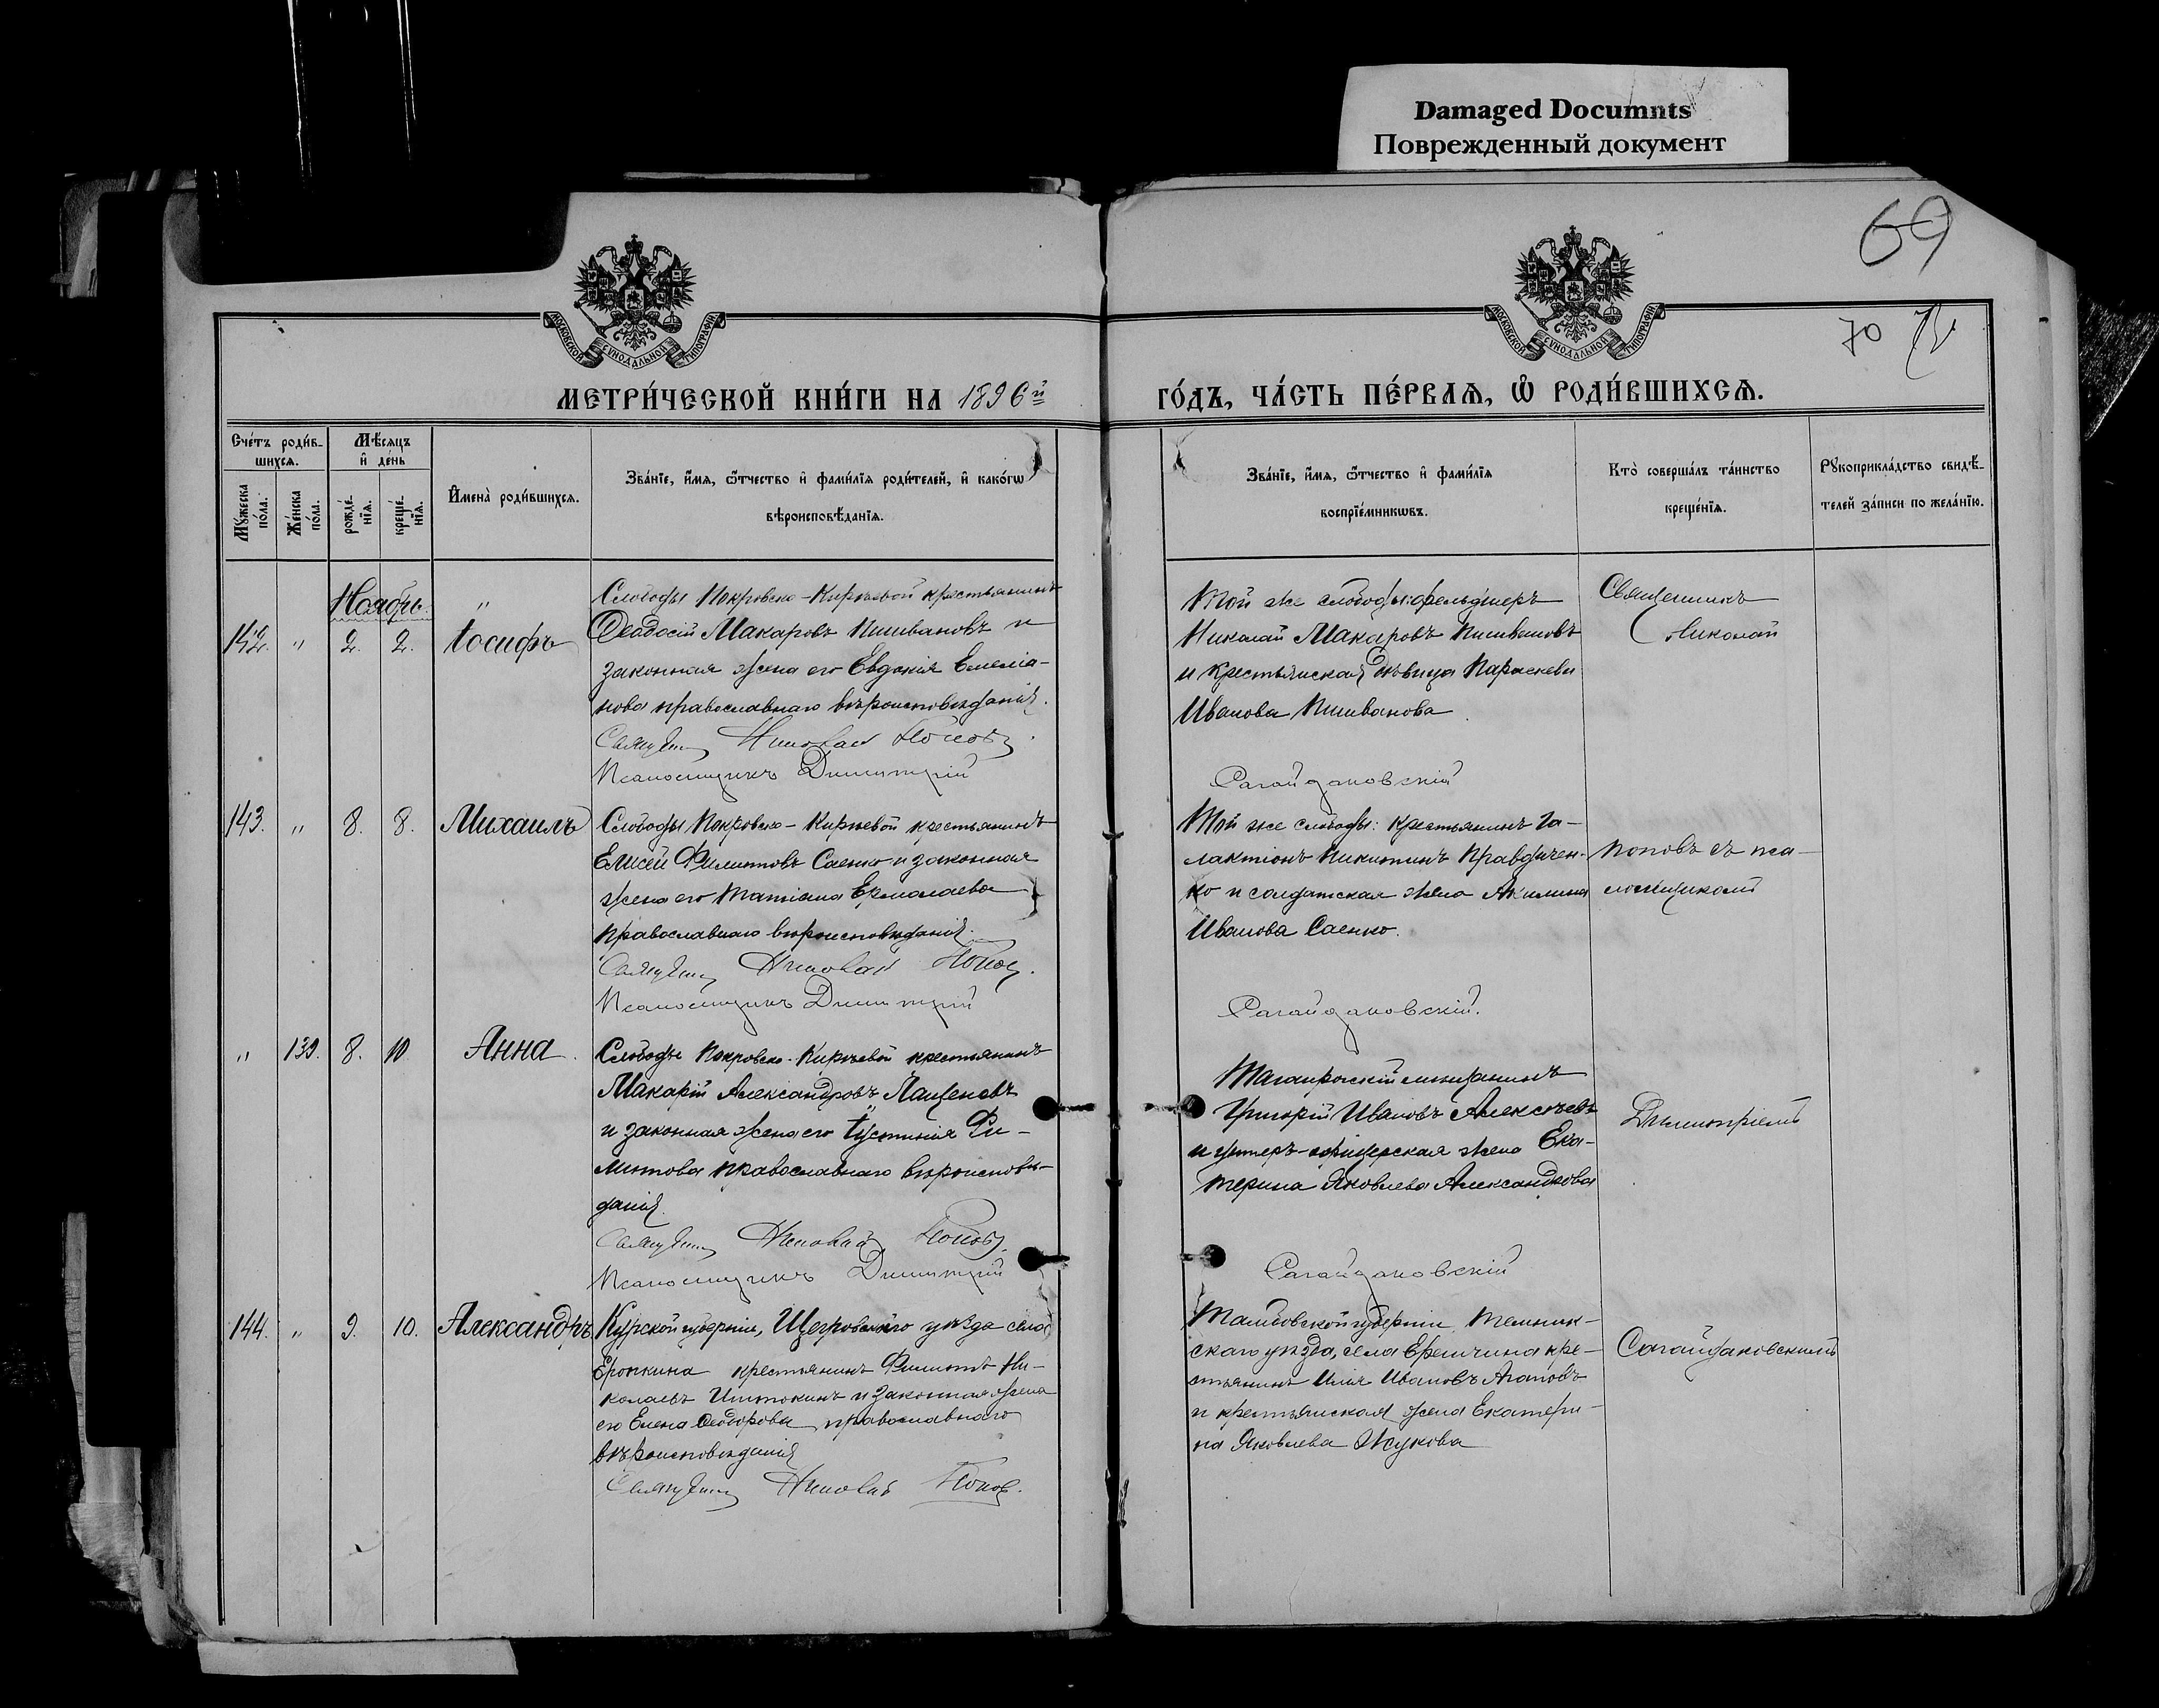 Damaged Documnts
Поврежденный документ
69
70
МОСКОВСКОЙ СУНОДАЛЬНОЙ ТИПОГРАФІИ
МОСКОВСКОЙ СУНОДАЛЬНОЙ ТИПОГРАФІИ
МЕТРИ́ЧЕСКОЙ КНИ́ГИ НА 1896й
ГО́ДЪ, ЧА́СТЬ ПЕ́РВАѦ, Ѽ РОДИ́ВШИХСѦ.
Сче́тъ роди́в-
шихсѧ.
Мѣ́сѧцъ
и҆ де́нь
Мꙋ́жеска
по́ла.
Же́нска
по́ла.
рожде́-
нїѧ.
креще́-
нїѧ.
И҆мена̀ роди́вшихсѧ.
Зва́нїе, и҆́мѧ, ѻ҆́тчество и҆ фами́лїѧ роди́телей, и҆ како́гѡ
вѣроисповѣ́данїѧ.
Зва́нїе, и҆́мѧ, ѻ҆́тчество и҆ фами́лїѧ
воспрїе́мникѡвъ.
Кто̀ соверша́лъ та́инство
креще́нїѧ.
Рꙋкоприкла́дство свидѣ́-
телей за́писи по жела́нїю.
Ноябрь
142. " 2. 2. Іосифъ
Слободы Покровско-Кирѣевой крестьянинъ
Ѳеодосій Макаровъ Пишвановъ и
законная жена его Евдокія Емеліа-
нова православнаго вѣроисповѣданія.
Священ Николай Поповъ.
Псаломщикъ Димитрій
Той же слободы: фельдшеръ
Николай Макаровъ Пишвановъ
и крестьянская дѣвица Параскева
Иванова Пишванова
Сагайдаковскій
Священникъ
Николай
143. " 8. 8. Михаилъ
Слободы Покровско-Кирѣевой крестьянинъ
Елисей Филиповъ Саенко и законная
жена его Татіана Ермолаева
православнаго вѣроисповѣданія.
Священ Николай Попов.
Псаломщикъ Димитрій
Той же слободы: крестьянинъ Га-
лактіонъ Никитинъ Правдичен-
ко и солдатская жена Акилина
Иванова Саенко.
Сагайдаковскій.
Поповъ съ пса-
ломщикомъ
" 139. 8. 10. Анна
Слободы Покровско-Кирѣевой крестьянинъ
Макарій Александровъ Пащеновъ
и законная жена его Іустинія Фи-
липова православнаго вѣроисповѣ-
данія.
Священ Николай Поповъ.
Псаломщикъ Димитрій
Таганрогскій мѣщанинъ
Григорій Ивановъ Алексѣевъ
и унтеръ-офицерская жена Ека-
терина Яковлева Александрова
Сагайдаковскій
Димитріемъ
144. " 9. 10. Александръ
Курской губерніи, Щегровскаго уѣзда села
Еропкина крестьянинъ Филиппъ Ни-
колаевъ и законная жена
его Елена Ѳеодорова православнаго
вѣроисповѣданія
Священ Николай Попов.
Тамбовской губерніи Темник-
скаго уѣзда, села Еремчина кре-
стьянинъ Илія Ивановъ Агаповъ
и крестьянская жена Екатери-
на Яковлева Жукова
Сагайдаковскимъ